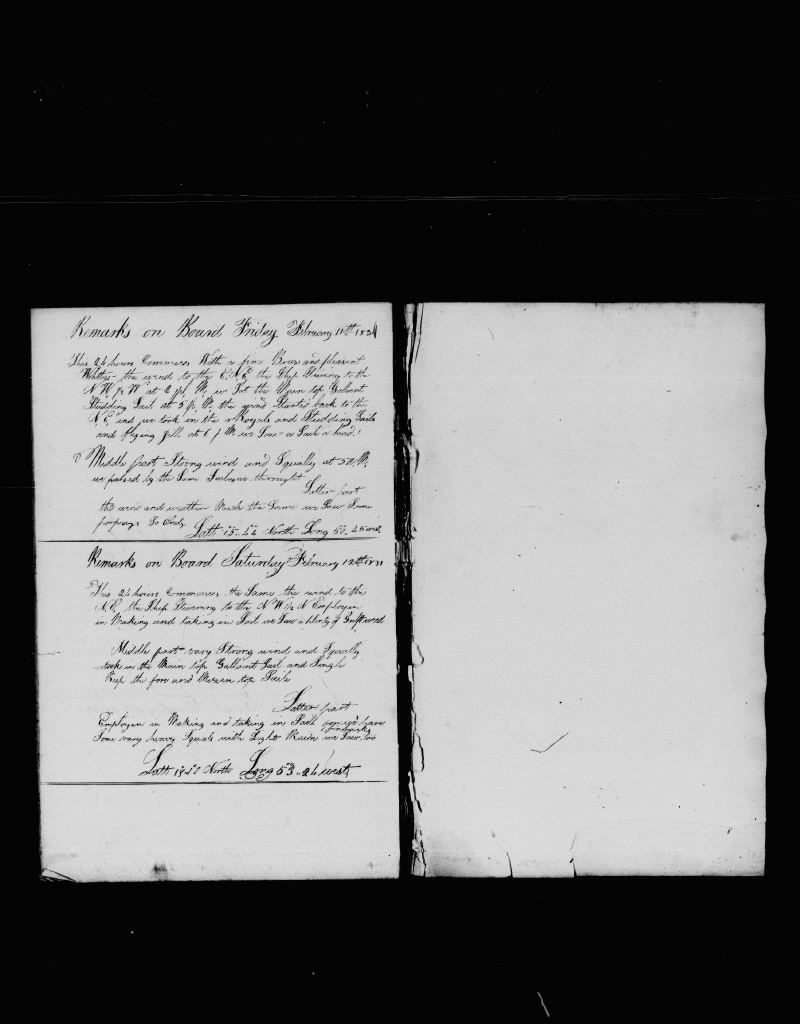 Remarks on Board Friday February 11th 1831
This 24 hours Commences With a fine Breas and plesent
Whitty the wind to the E.N.E. the Ship Stiering to the
N W by W at 2 p. M. we Set the Main top Gallant
Studding Sail at 5 p. M. the wind Started back to the
N E and we took in the Royals and Studding Sails
and flying Jibb at 6 p M we Saw a Sail a head
Middle part Strong wind and Squally at 5 A. M.
we passed by the Same
Latter part
the wind and weather Much the Same we Saw Some
Latt 15..44 North Long 50..45 west
Remarks on Board Saturday February 12th 1831
This 24 hours Commences the Same the wind to the
N.E. the Ship Stiering to the N W 1/2 N Employen
in Making and taking in Sail we Saw a plenty of Gulf weed
Middle part very Strong wind and Squally
took in the Main top Gallant Sail and Single
Reep the fore and Mizzen top Sails
Latter part
Employen in Making and taking in Saill for we have
Some very heavy Squals with Light Rains we Saw too
Latt 18.50 North Long 53..24 west